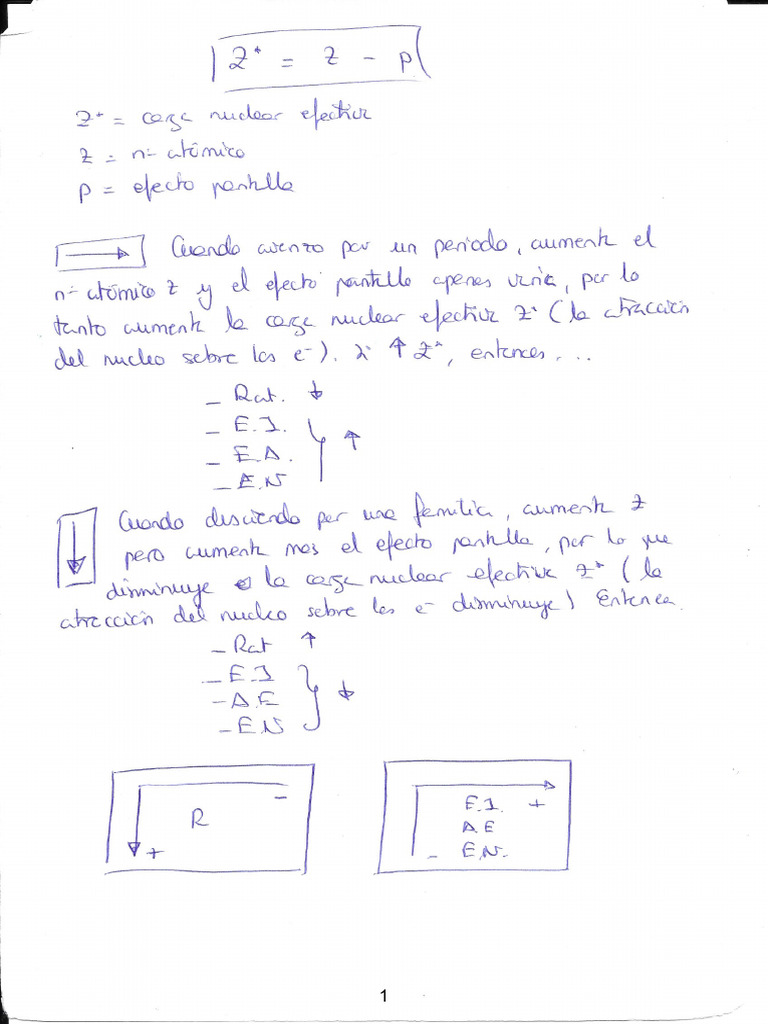 Z* = Z - p
Z* = carga nuclear efectiva
Z = nº atómico
p = efecto pantalla
Cuando avanzo por un periodo, aumenta el
nº atómico Z y el efecto pantalla apenas varía, por lo
tanto aumenta la carga nuclear efectiva Z* (la atracción
del nucleo sobre los e-). Si ↑ Z*, entonces...
- Rat. ↓
- E.I.
- E.A. ↑
- E.N
Cuando desciendo por una familia, aumenta Z
pero aumenta mas el efecto pantalla, por lo que
disminuye la carga nuclear efectiva Z* (la
atracción del nucleo sobre los e- disminuye) Entonces
- Rat ↑
- E.I
- A.E ↓
- E.N
-
R
+
E.I. +
A.E
- E.N.
1